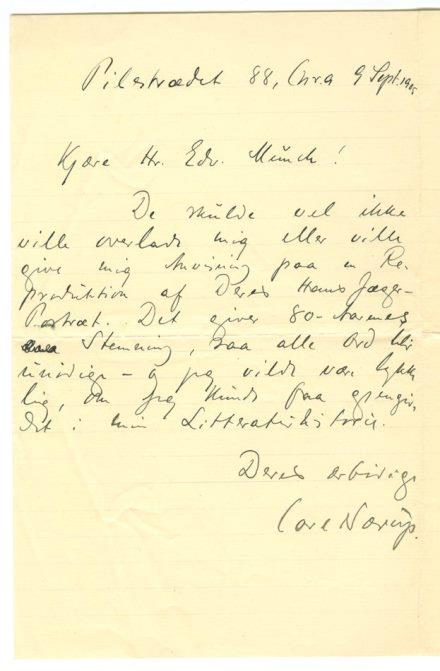 Pilestrædet 88, Chr.a 9 Sept. 1905
Kjære Hr. Edv. Munch!
De skulde vel ikke
ville overlade mig eller ville
give mig Anvisning paa en Re-
produktion af Deres Hans Jæger-
Portræt. Det giver 80-Aarnes
Stemning, saa alle Ord blir
unødige – og jeg vilde være lykke-
lig, om jeg kunde faa gjengi
det i min Litteraturhistorie.
Deres ærbødige
Carl Nærup.